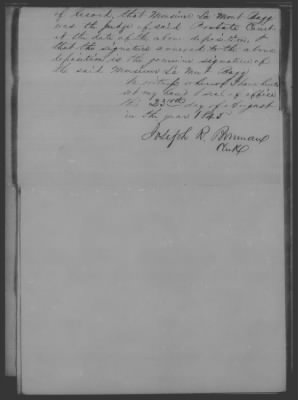 of record, that Monsieur La Mont Bagg
was the judge of said Probate Court
at the date of the above deposition, &
that the signature annexed to the above
deposition is the genuine signature of
the said Monsieur La Mont Bagg
In witness whereof I have hereto
set my hand & seal of office
this 23 day of August
in the year 1845
Joseph R. Bowman
Clerk